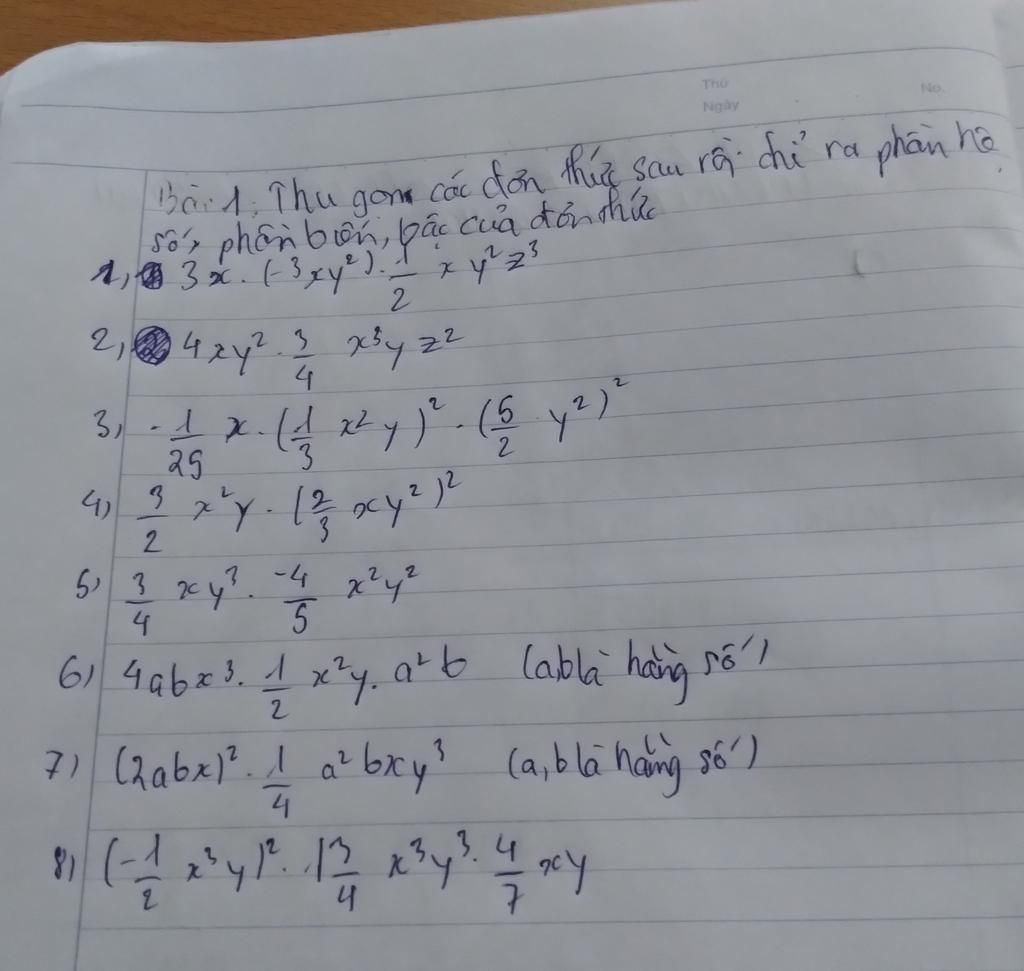 Thứ
No.
Ngày
Bài 1: Thu gọn các đơn thức sau rồi chỉ ra phần hệ
số, phần biến, bậc của đơn thức
1, 3x . (-3xy²) . 1/2 xy²z³
2, 4xy² . 3/4 x³yz²
3, -1/25 x . (1/3 x²y)² . (5/2 y²)²
4) 3/2 x²y . (2/3 xy²)²
5) 3/4 xy³ . -4/5 x²y²
6) 4abx³ . 1/2 x²y . a²b (a,b là hằng số)
7) (2abx)² . 1/4 a²bxy³ (a,b là hằng số)
8) (-1/2 x³y)² . 1 3/4 x³y³ . 4/7 xy